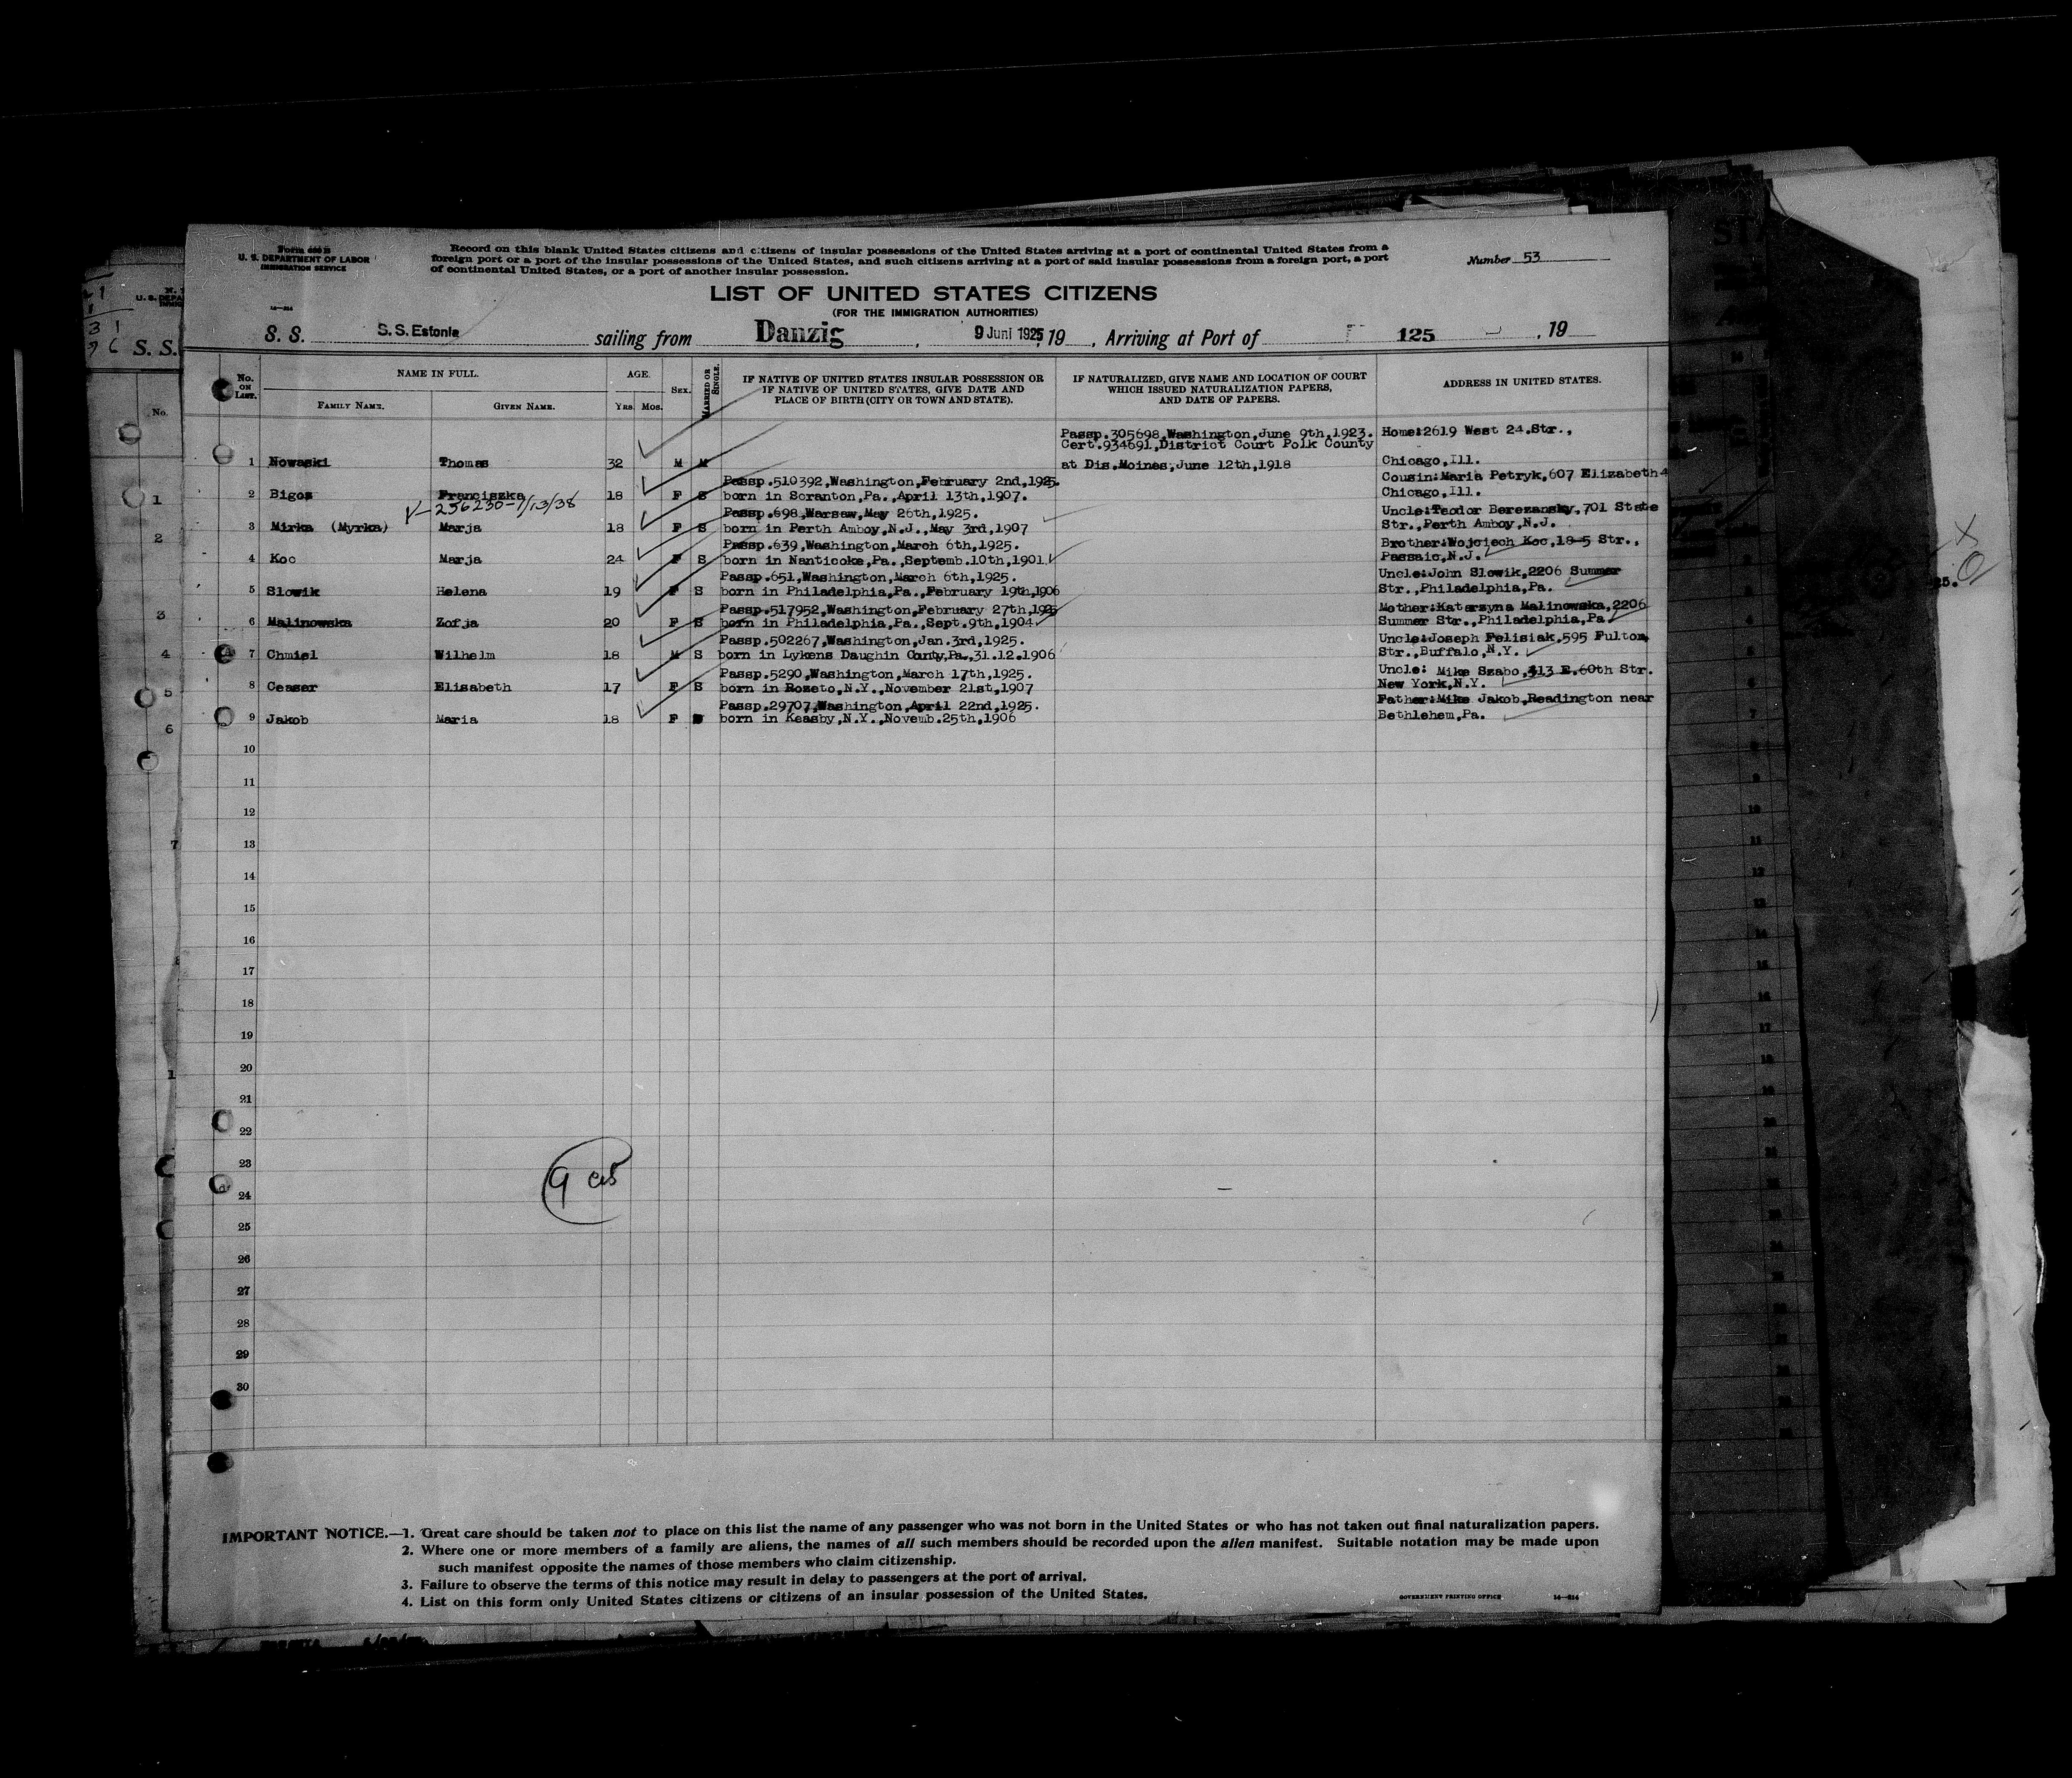 Form 630 B
U. S. DEPARTMENT OF LABOR
IMMIGRATION SERVICE
Record on this blank United States citizens and citizens of insular possessions of the United States arriving at a port of continental United States from a
foreign port or a port of the insular possessions of the United States, and such citizens arriving at a port of said insular possessions from a foreign port, a port
of continental United States, or a port of another insular possession.
Number 53
14—814
LIST OF UNITED STATES CITIZENS
(FOR THE IMMIGRATION AUTHORITIES)
S. S. S. S. Estonia sailing from Danzig, 9 Juni 1925, 19 , Arriving at Port of 125 , 19
No. ON LIST.
NAME IN FULL.
FAMILY NAME. GIVEN NAME.
AGE.
YRS. MOS.
SEX.
MARRIED OR SINGLE.
IF NATIVE OF UNITED STATES INSULAR POSSESSION OR
IF NATIVE OF UNITED STATES, GIVE DATE AND
PLACE OF BIRTH (CITY OR TOWN AND STATE).
IF NATURALIZED, GIVE NAME AND LOCATION OF COURT
WHICH ISSUED NATURALIZATION PAPERS,
AND DATE OF PAPERS.
ADDRESS IN UNITED STATES.
Passp.305698,Washington,June 9th,1923. Home:2619 West 24.Str.,
Cert.934691,District Court Polk County
1 Nowaski Thomas 32 M M at Dis.Moines,June 12th,1918 Chicago,Ill.
Passp.510392,Washington,February 2nd,1925. Cousin:Maria Petryk,607 Elizabeth
2 Bigos Franciszka 18 F S born in Scranton,Pa.,April 13th,1907. Chicago,Ill.
256230-1/13/38 Passp.698,Warsaw,May 26th,1925. Uncle:Teodor Berezansky,701 State
3 Mirka (Myrka) Marja 18 F S born in Perth Amboy,N.J.,May 3rd,1907 Str.,Perth Amboy,N.J.
Passp.639,Washington,March 6th,1925. Brother:Wojciech Koc,18-5 Str.,
4 Koc Marja 24 F S born in Nanticoke,Pa.,Septemb.10th,1901 Passaic,N.J.
Passp.651,Washington,March 6th,1925. Uncle:John Slowik,2206 Summer
5 Slowik Helena 19 F S born in Philadelphia,Pa.,February 19th,1906 Str.,Philadelphia,Pa.
Passp.517952,Washington,February 27th,1925 Mother:Katarzyna Malinowska,2206
6 Malinowska Zofja 20 F S born in Philadelphia,Pa.,Sept.9th,1904 Summer Str.,Philadelphia,Pa.
Passp.502267,Washington,Jan.3rd,1925. Uncle:Joseph Felisiak,595 Fulton
7 Chmiel Wilhelm 18 M S born in Lykens Daughin County,Pa.,31.12.1906 Str.,Buffalo,N.Y.
Passp.5290,Washington,March 17th,1925. Uncle: Mike Szabo,413 E.60th Str.
8 Ceasar Elisabeth 17 F S born in Rozeto,N.Y.,November 21st,1907 New York,N.Y.
Passp.29707,Washington,April 22nd,1925. Father:Mike Jakob,Readington near
9 Jakob Maria 18 F S born in Keasby,N.Y.,Novemb.25th,1906 Bethlehem,Pa.
10
11
12
13
14
15
16
17
18
19
20
21
22
23
9
24
25
26
27
28
29
30
IMPORTANT NOTICE.—1. Great care should be taken not to place on this list the name of any passenger who was not born in the United States or who has not taken out final naturalization papers.
2. Where one or more members of a family are aliens, the names of all such members should be recorded upon the alien manifest. Suitable notation may be made upon
such manifest opposite the names of those members who claim citizenship.
3. Failure to observe the terms of this notice may result in delay to passengers at the port of arrival.
4. List on this form only United States citizens or citizens of an insular possession of the United States.
GOVERNMENT PRINTING OFFICE 14—814